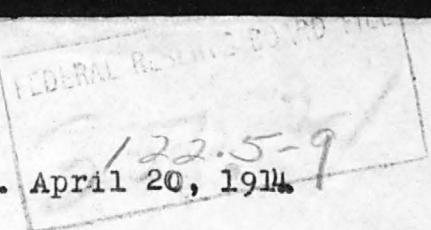 FEDERAL RESERVE BOARD FILE
122.5-9
. April 20, 1914.